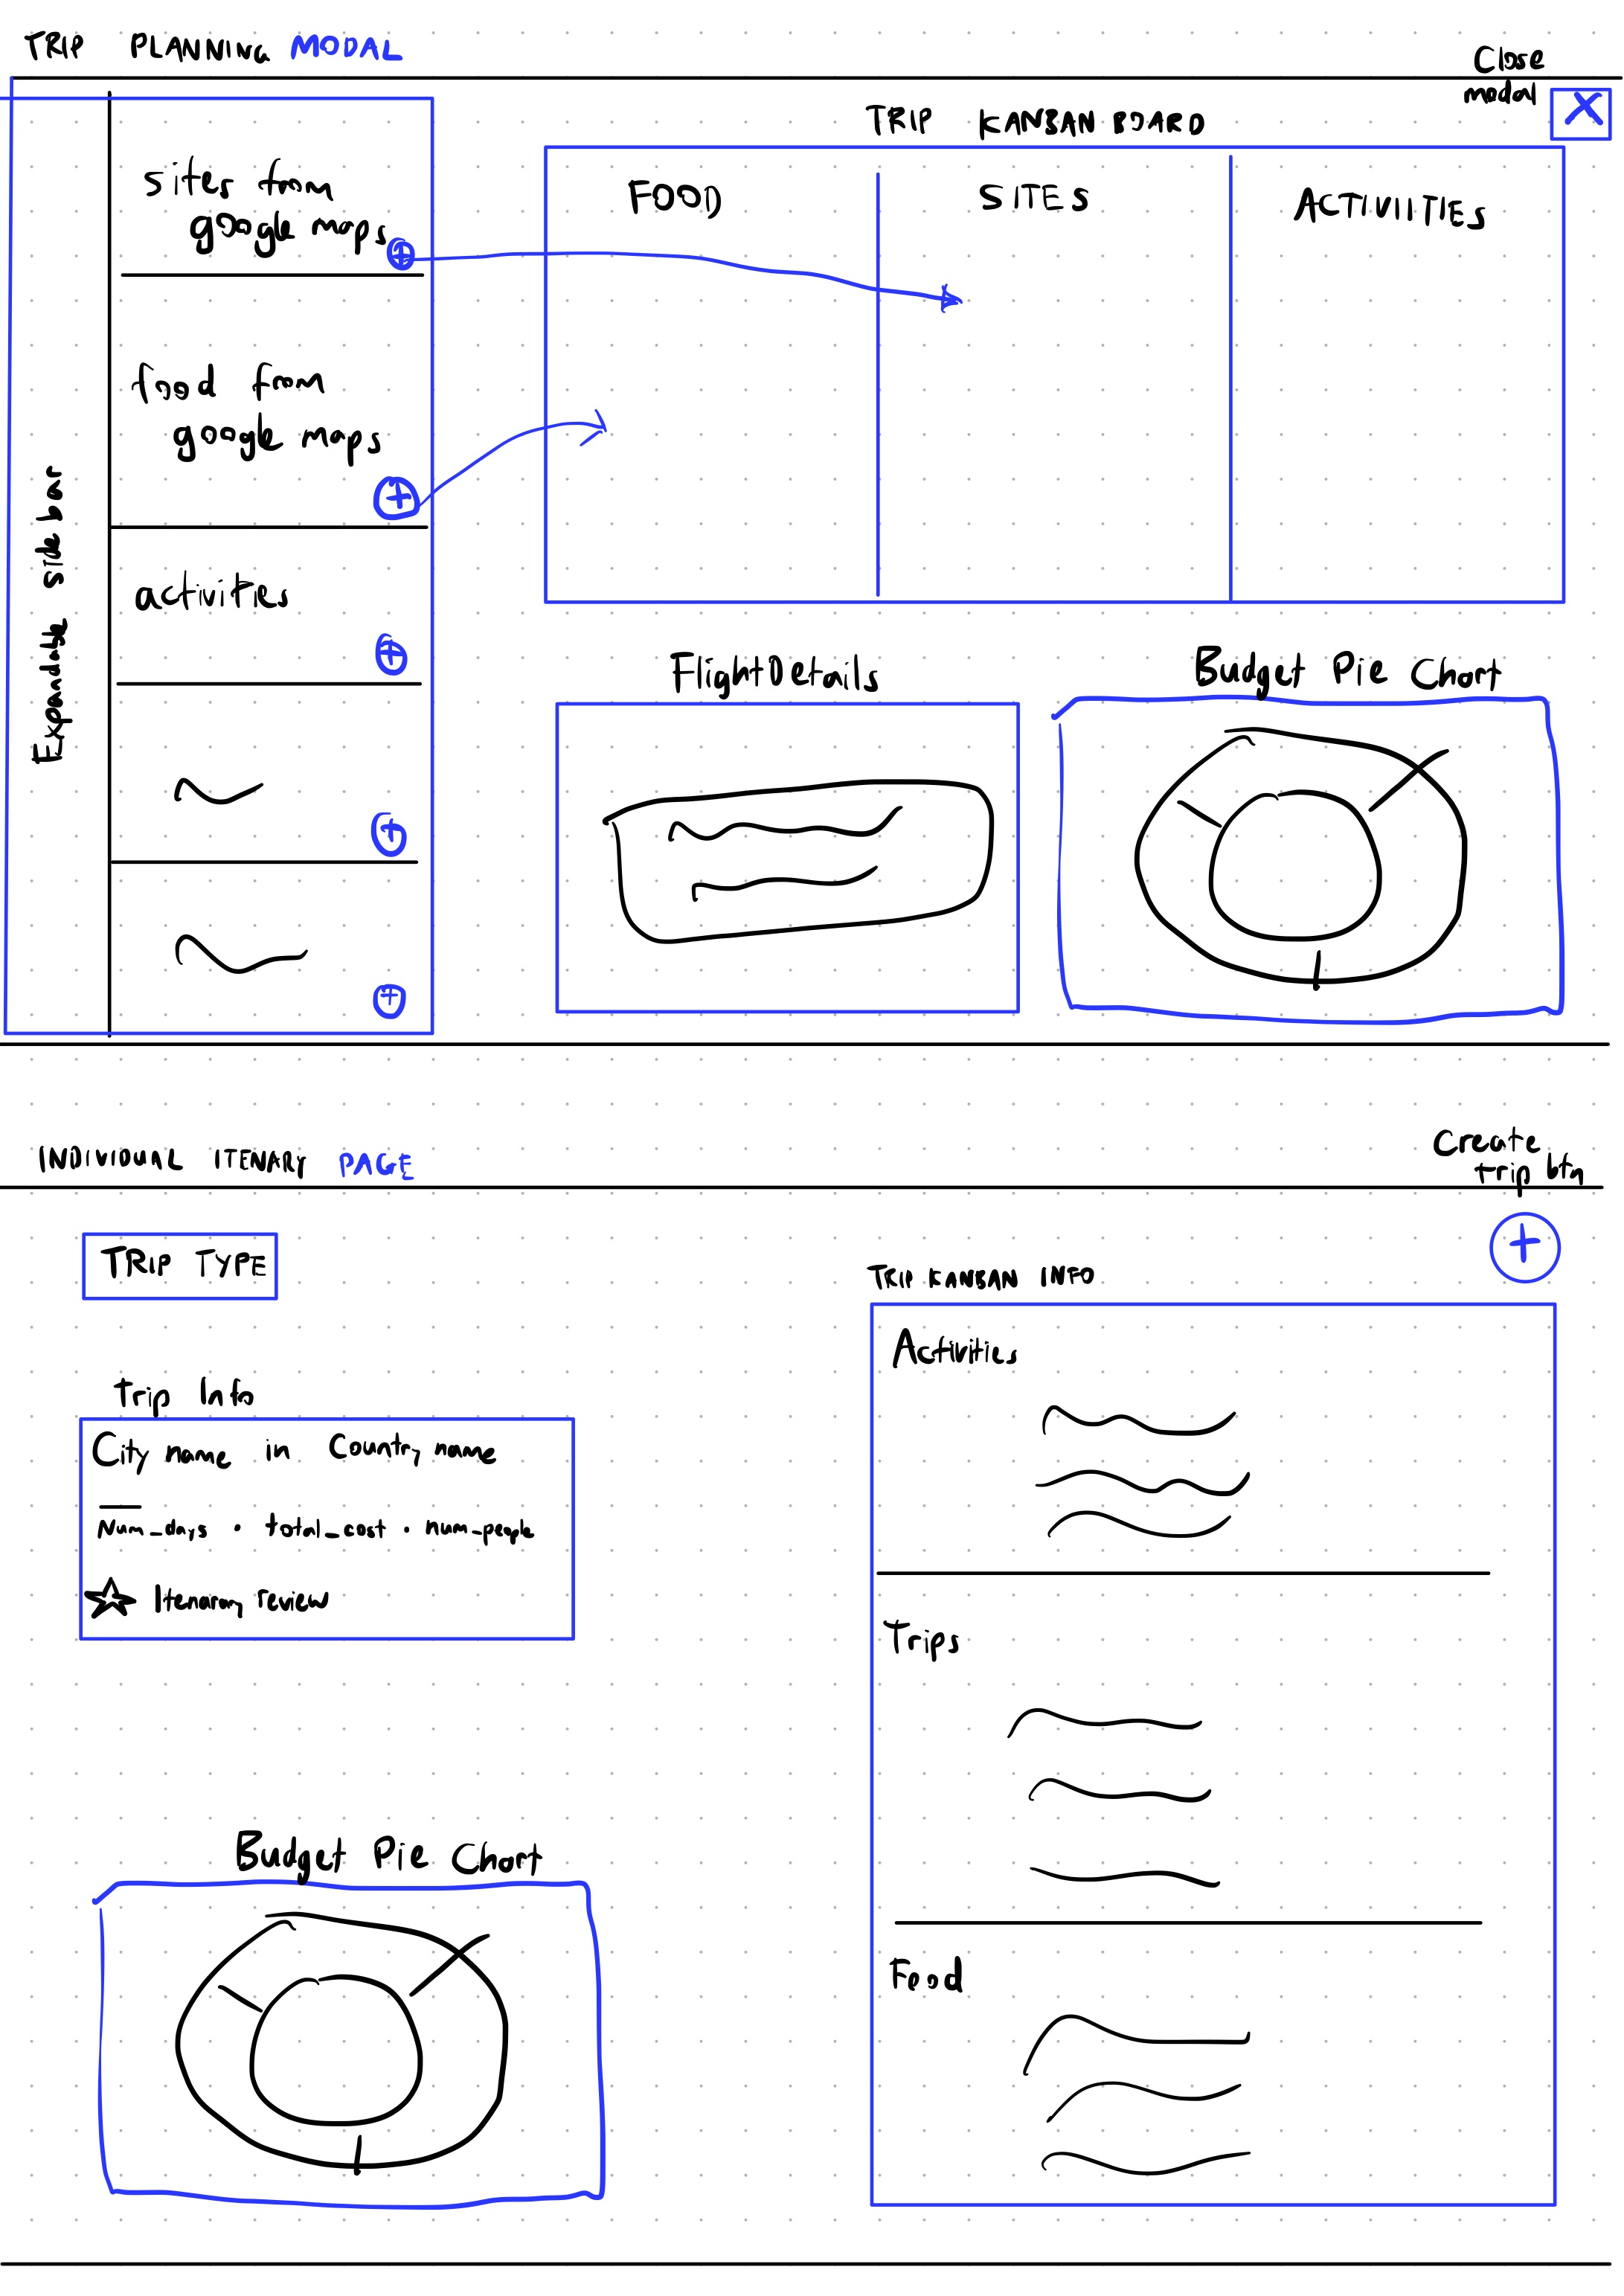 TRIP PLANNING MODAL
Close
modal
X
TRIP KANBAN BOARD
Expandable side bar
sites from
google maps
+
food from
google maps
+
activities
+
+
+
FOOD
SITES
ACTIVITIES
FlightDetails
Budget Pie Chart
INDIVIDUAL ITENARY PAGE
Create
trip btn
+
TRIP TYPE
Trip Info
City name in Country name
Num_days • total_cost • num_people
Itenarary review
Budget Pie Chart
TRIP KANBAN INFO
Activities
Trips
Food